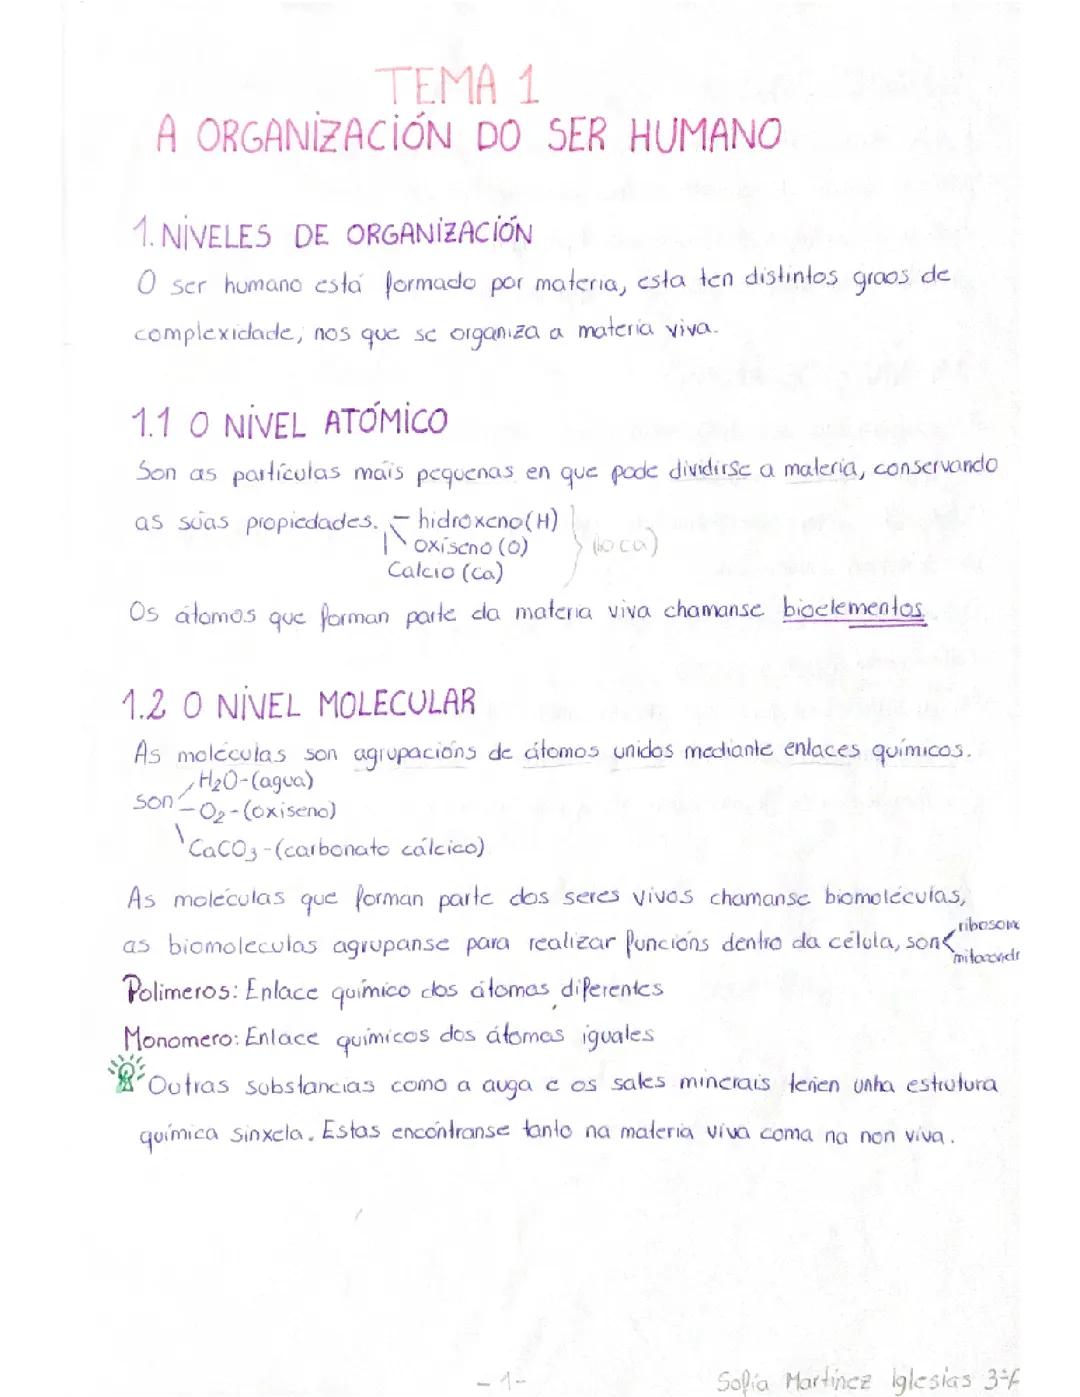 TEMA 1
A ORGANIZACIÓN DO SER HUMANO
1. NIVELES DE ORGANIZACIÓN
O ser humano está formado por materia, esta ten distintos graos de
complexidade, nos que se organiza a materia viva.
1.1 O NIVEL ATÓMICO
Son as partículas máis pequenas en que pode dividirse a materia, conservando
as súas propiedades. - hidróxeno (H)
oxíseno (O)
Calcio (Ca)
Os átomos que forman parte da materia viva chamanse bioelementos
1.2 O NIVEL MOLECULAR
As moléculas son agrupacións de átomos unidos mediante enlaces químicos.
son H2O-(agua)
- O2-(oxíseno)
CaCO3-(carbonato cálcico)
As moléculas que forman parte dos seres vivos chamanse biomoléculas,
as biomoleculas agrupanse para realizar funcións dentro da célula, son
Polimeros: Enlace químico dos átomos diferentes
Monomero: Enlace químicos dos átomos iguales
Outras substancias como a auga e os sales minerais teñen unha estrutura
química sinxela. Estas encóntranse tanto na materia viva coma na non viva.
-1-
Sofía Martínez Iglesias